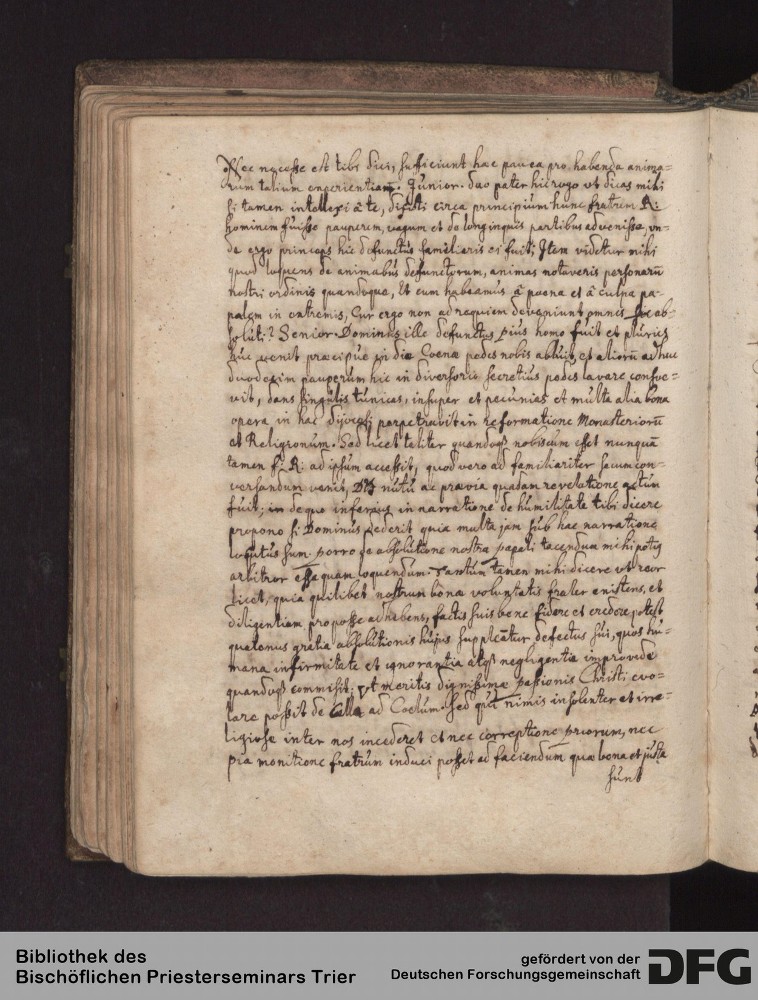 Nec necesse est tibi dici, sufficiunt hæc pauca pro habenda anima-
rum talium experientiam. Junior. duo pater hic rogo vt dicas mihi
si tamen intellexi â te, dixisti circa principium hunc fratrem R:
hominem fuisse pauperem, vagum et de longinquis partibus advenisse, vn-
de ergo princeps hic defunctus familiaris ei fuit; Item videtur mihi
quod loquens de animabus defunctorum, animas notaveris personarū
nostri ordinis quandoque, Et cum habeamus â poena et â culpa pa-
palem in extremis, Cur ergo non ad requiem deveniunt omnes sic ab-
soluti? Senior. Dominus ille defunctus pius homo fuit et pluries
huc venit præcipue in die Coenæ pedes nobis abluit, et aliorū adhuc
duodecim pauperum hic in diversorio secretius pedes lavare consue-
vit, dans singulis tunicas, insuper et pecunias et multa alia bona
opera in hac dijocesi perpetravit in reformatione Monasteriorū
et Religionum. Sed licet teliter quandoq3 nobiscum esset nunquā
tamen f: R: ad ipsum accessit, quod vero ad familiariter secum con-
versandum venit, nutu ac prævia quadam revelatione actum
fuit; in de quo inferius in narratione de humilitate tibi dicere
propono si Dominus dederit quia multa jam sub hac narratione
loqutus sum. porro de absolutione nostra papali tacendum mihi potiq
arbitror esse quam loquendum. Tantum tamen mihi dicere vt reor
licet, quia quilibet nostrum bonæ voluntatis frater existens, et
diligentiam pro posse adhibens, factis suis bene fidere et credere potest
quatenus gratia absolutionis hujus suppleātur defectus sui, quos hu-
mana infirmitate et ignorantia atq3 negligentia improvide
quandoq3 commisit; vt meritis dignissimæ passionis Christi evo-
lare possit de Cella ad Coelum. Sed qui nimis insolenter et irre-
ligiose inter nos incederet et nec correptione priorum, nec
pia monitione fratrum induci posset ad faciendum quæ bona et justa
sunt
Bibliothek des
Bischöflichen Priesterseminars Trier
gefördert von der
Deutschen Forschungsgemeinschaft
DFG